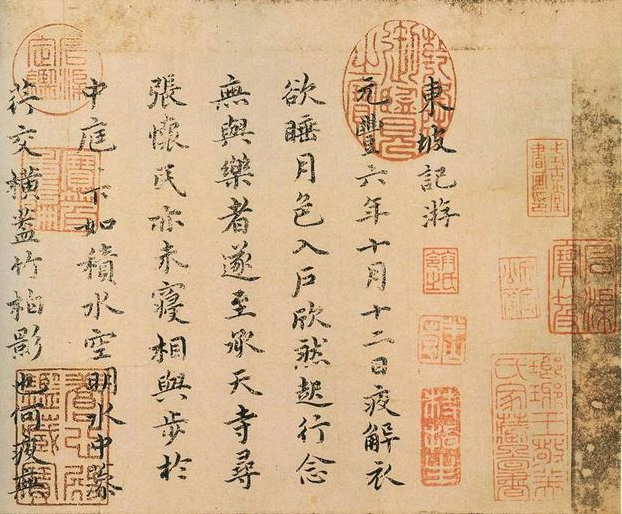 東坡記游
元豐六年十月十二日夜解衣
欲睡月色入戶欣然起行念
無與樂者遂至承天寺尋
張懷民亦未寢相與步於
中庭庭下如積水空明水中藻
荇交橫蓋竹柏影也何夜無
石渠寶笈